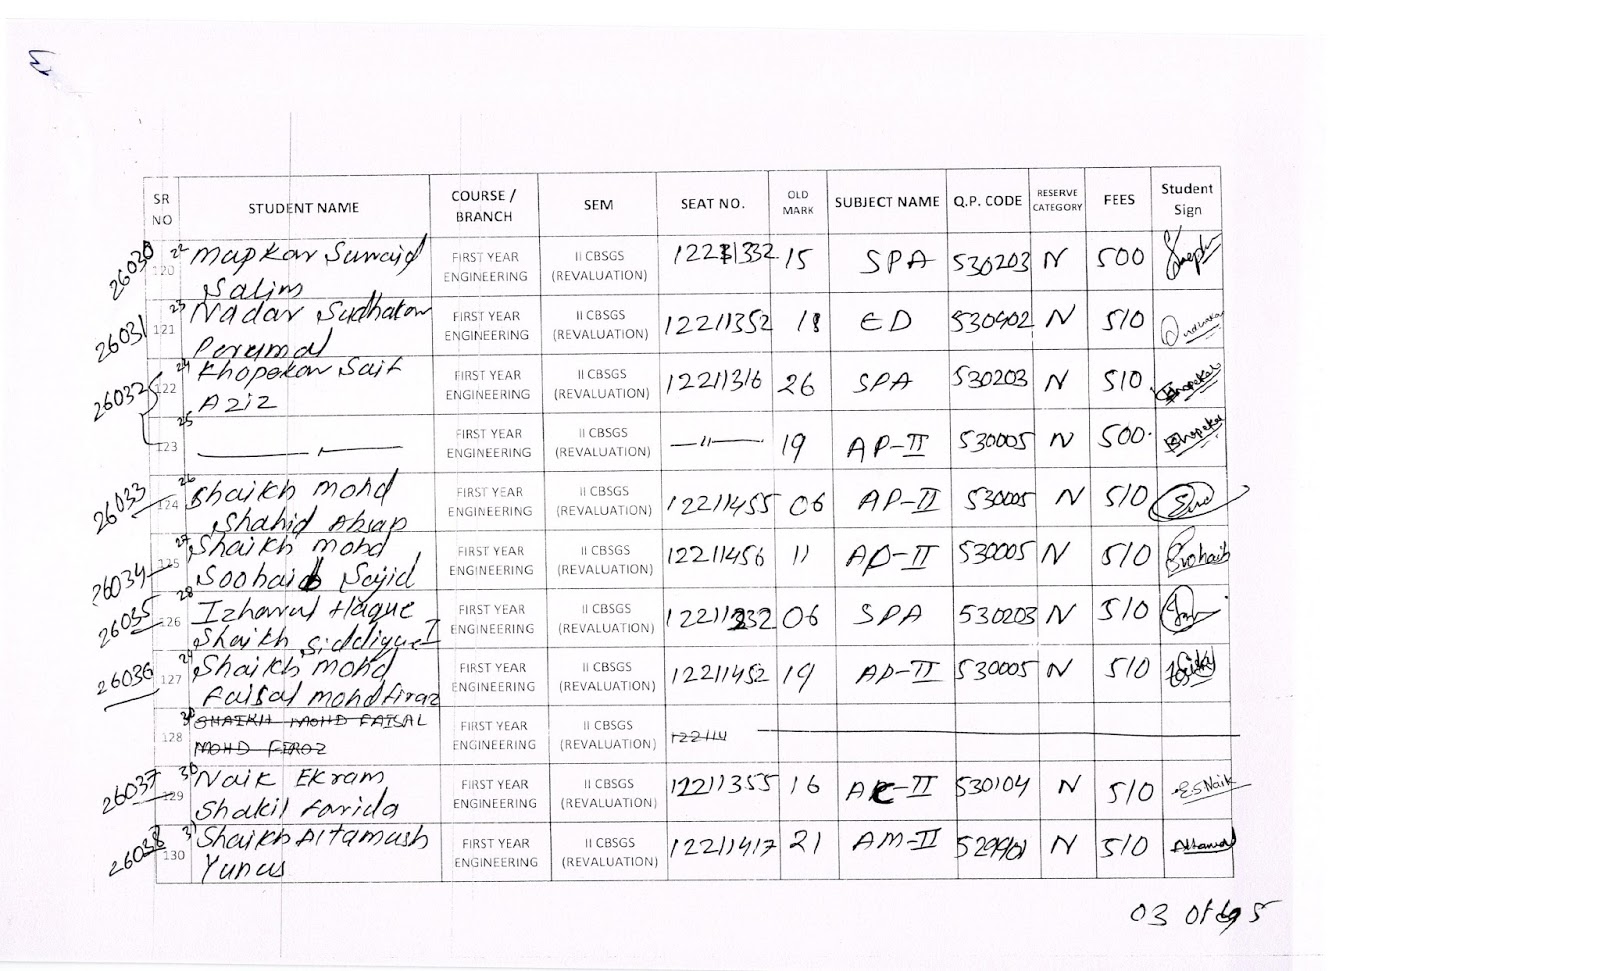 SR NO STUDENT NAME COURSE / BRANCH SEM SEAT NO. OLD MARK SUBJECT NAME Q.P. CODE RESERVE CATEGORY FEES Student Sign
26030 120 22 Mapkar Sunaid Salim FIRST YEAR ENGINEERING II CBSGS (REVALUATION) 12211332 15 SPA 530203 N 500
26031 121 23 Nadar Sudhakar Perumal FIRST YEAR ENGINEERING II CBSGS (REVALUATION) 12211352 18 ED 530402 N 510
26032 122 24 Khopekar Saif Aziz FIRST YEAR ENGINEERING II CBSGS (REVALUATION) 12211316 26 SPA 530203 N 510 Khopekar
123 25 —"— FIRST YEAR ENGINEERING II CBSGS (REVALUATION) —"— 19 AP-II 530005 N 500. Khopekar
26033 124 26 Shaikh Mohd Shahid Absap FIRST YEAR ENGINEERING II CBSGS (REVALUATION) 12211455 06 AP-II 530005 N 510
26034 125 27 Shaikh Mohd Soohaib Sajid FIRST YEAR ENGINEERING II CBSGS (REVALUATION) 12211456 11 AP-II 530005 N 510
26035 126 28 Izharul Haque Shaikh Siddique I FIRST YEAR ENGINEERING II CBSGS (REVALUATION) 12211232 06 SPA 530203 N 510
26036 127 29 Shaikh Mohd Faisal Mohd firaz FIRST YEAR ENGINEERING II CBSGS (REVALUATION) 12211452 19 AP-II 530005 N 510
128 30 SHAIKH MOHD FAISAL MOHD FIROZ FIRST YEAR ENGINEERING II CBSGS (REVALUATION) 122114
26037 129 30 Naik Ekram Shakil Farida FIRST YEAR ENGINEERING II CBSGS (REVALUATION) 12211355 16 AC-II 530104 N 510 E.S Naik
26038 130 31 Shaikh Altamash Yunus FIRST YEAR ENGINEERING II CBSGS (REVALUATION) 12211417 21 AM-II 529901 N 510
03 Of 5